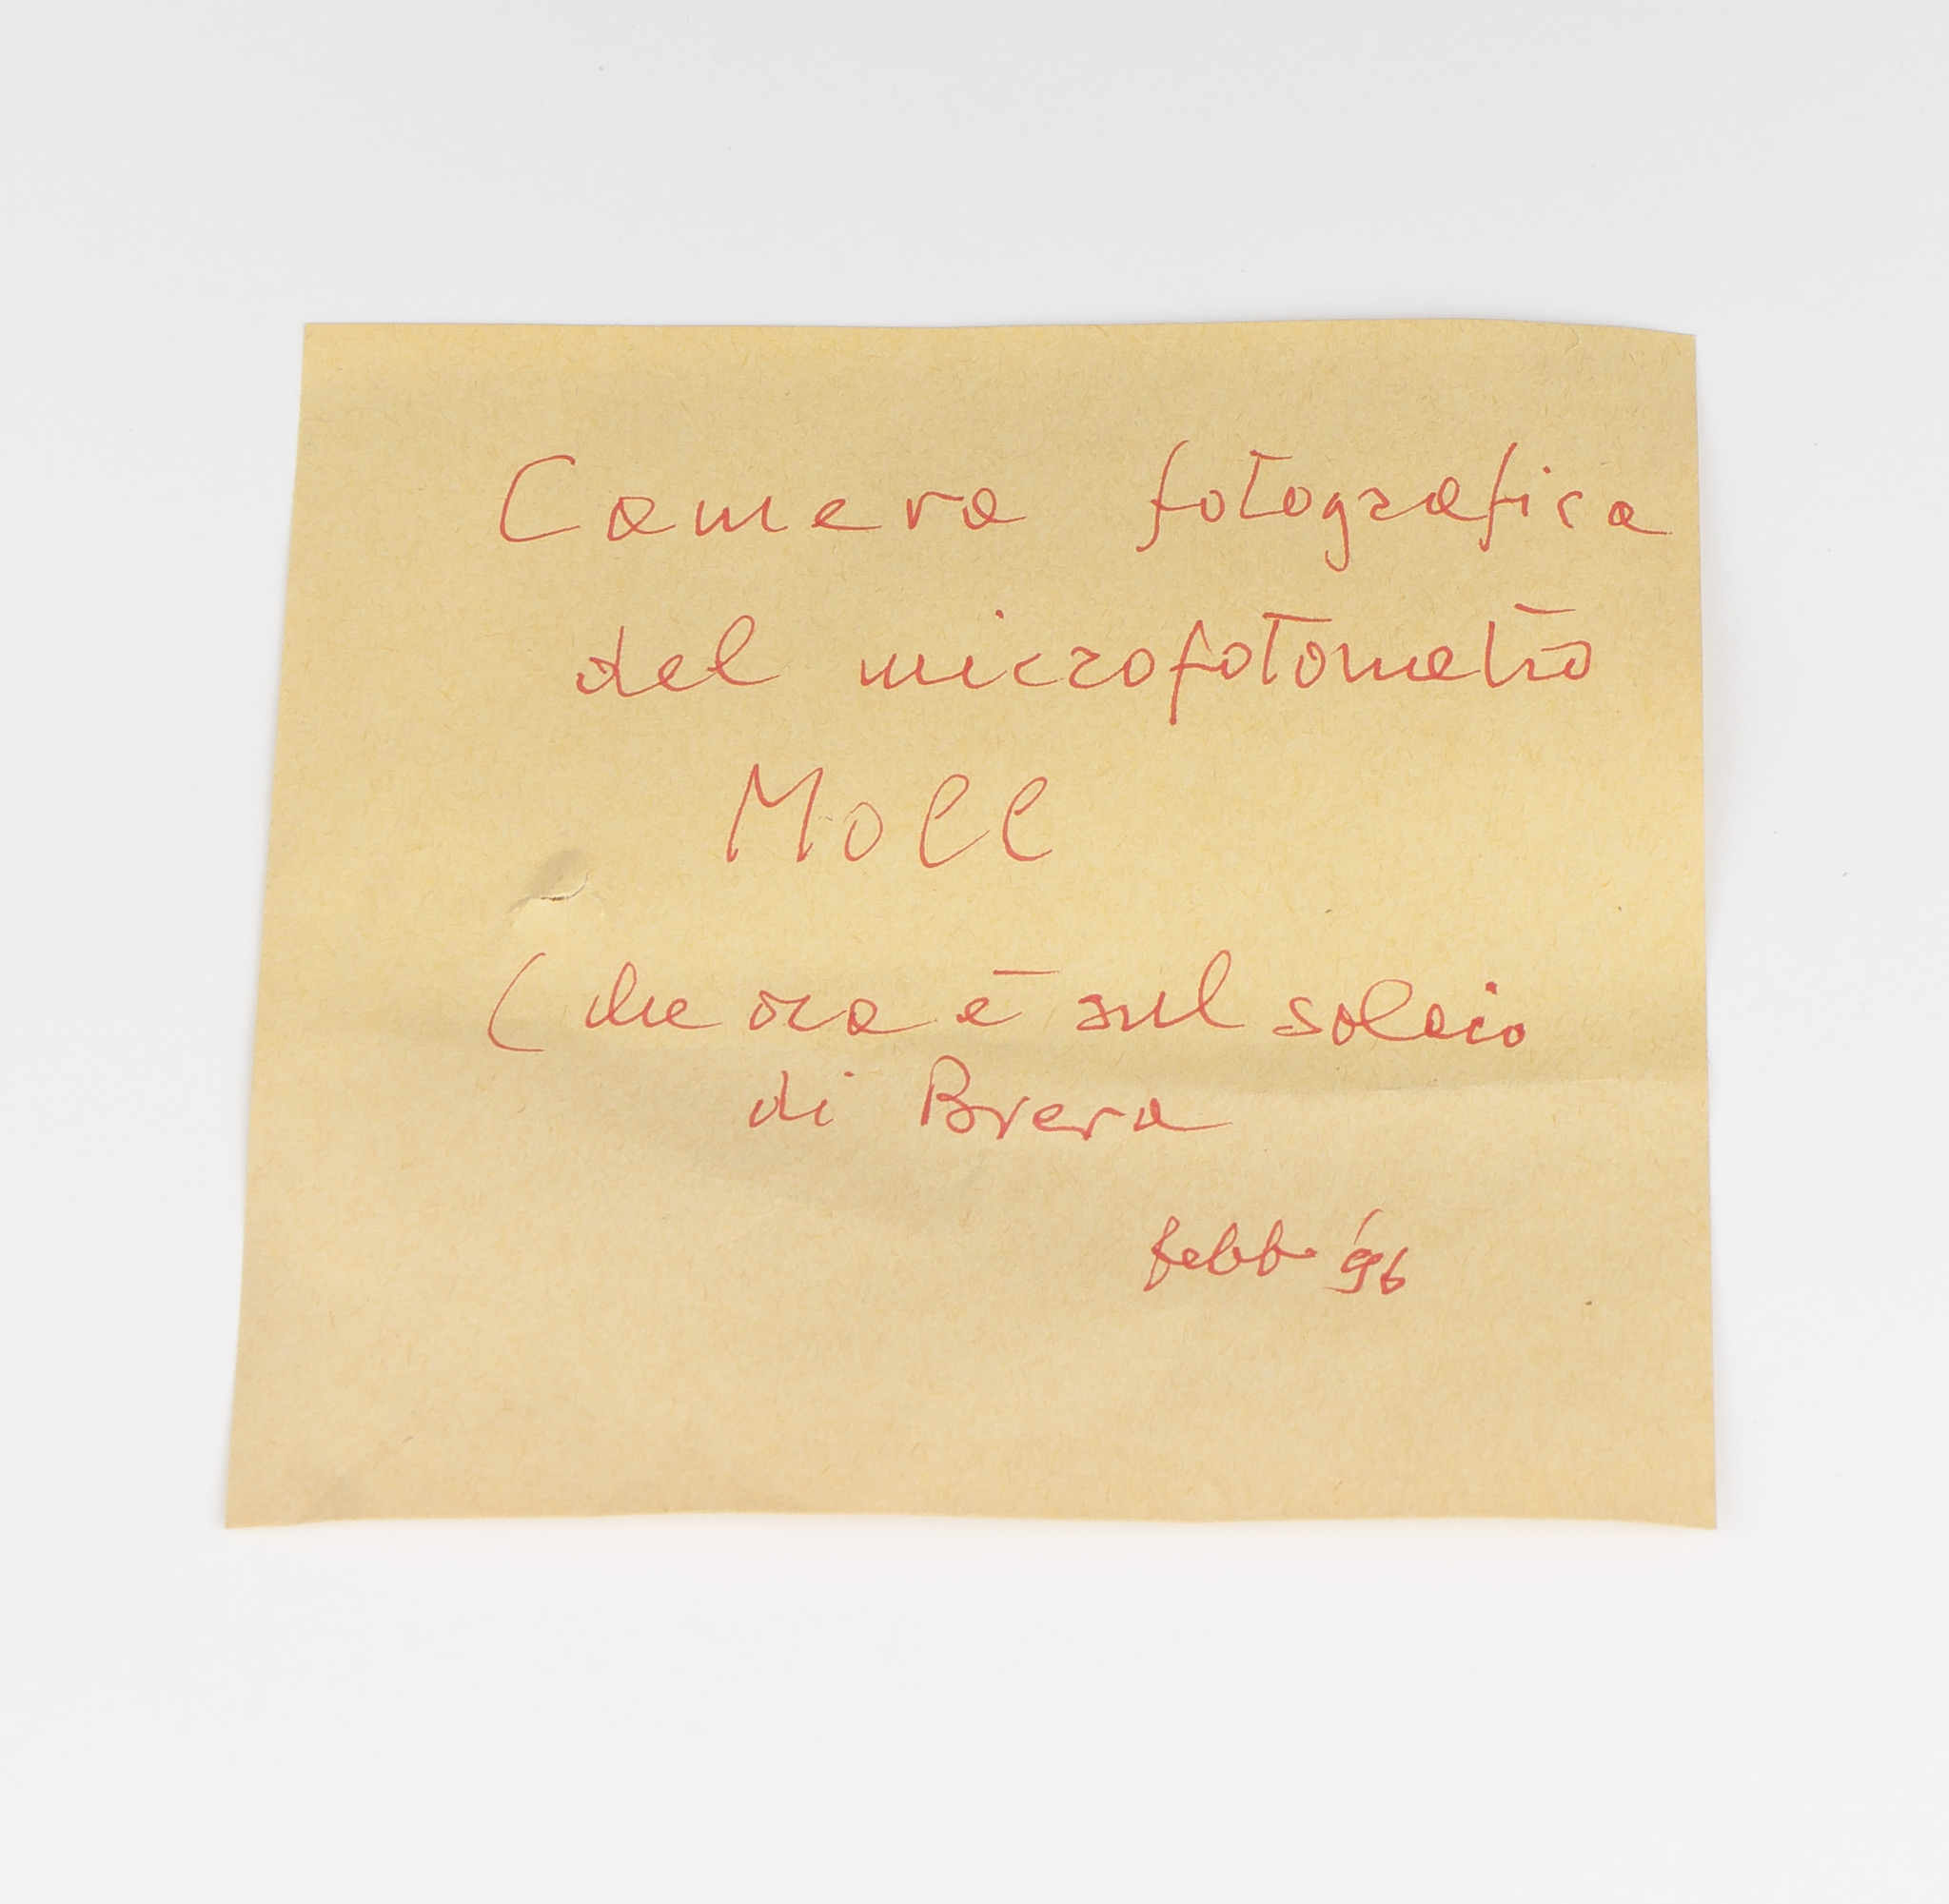 Camera fotografica
del microfotometro
Moll
(che ora è sul solaio
di Brera
febb '96